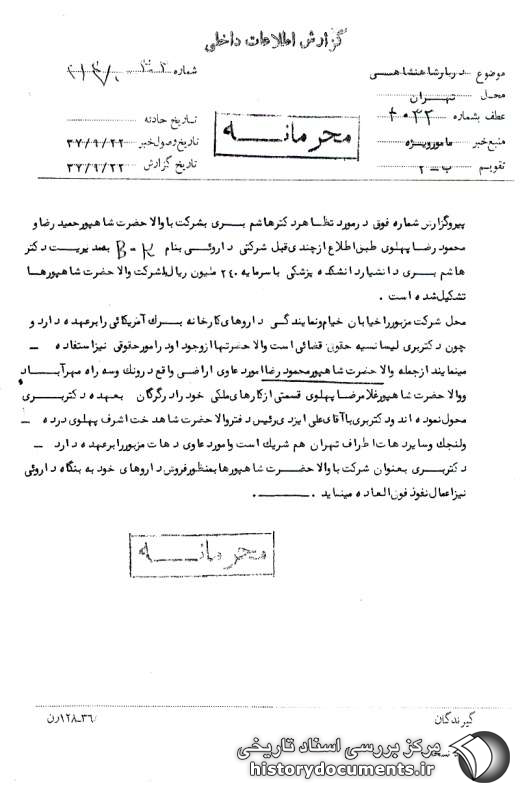 گزارش اطلاعات داخلی
موضوع دربار شاهنشاهی
شماره
محل تهران
عطف بشماره ۲۰۳۲
تاریخ حادثه
منبع خبر مامور ویژه
تاریخ وصول خبر ۳۷/۹/۲۲
تقویم ب-۲
تاریخ گزارش ۳۷/۹/۲۲
محرمانه
پیرو گزارش شماره فوق در مورد تظاهر دکتر هاشم بری بشرکت با والاحضرت شاهپور حمید رضا و
محمود رضا پهلوی طبق اطلاع از چندی قبل شرکتی داروئی بنام B-K بمدیریت دکتر
هاشم بری دانشیار دانشکده پزشکی با سرمایه ۲۴۰ ملیون ریال بشرکت والاحضرت شاهپورها
تشکیل شده است .
محل شرکت مزبور را خیابان خیام و نمایندگی داروهای کارخانه برک آمریکائی را برعهده دارد و
چون دکتر بری لیسانسیه حقوق قضائی است والاحضرتها از وجود او در امور حقوقی نیز استفاده —
مینمایند از جمله والاحضرت شاهپور محمود رضا امور دعاوی اراضی واقع در ونک و سه راه مهرآباد
و والاحضرت شاهپور غلامرضا پهلوی قسمتی از کارهای ملکی خود را در گرگان بعهده دکتر بری
محول نموده اند و دکتر بری با آقای علی ایزدی رئیس دفتر والاحضرت شاهدخت اشرف پهلوی در ده —
ولنجک و سایر دهات اطراف تهران هم شریک است و امور دعاوی دهات مزبور را برعهده دارد —
دکتر بری بعنوان شرکت با والاحضرت شاهپورها بمنظور فروش داروهای خود به بنگاه داروئی
نیز اعمال نفوذ فوق العاده مینماید .
محرمانه
گیرندگان
۱۲۸-۳۶/رن
مرکز بررسی اسناد تاریخی
historydocuments.ir